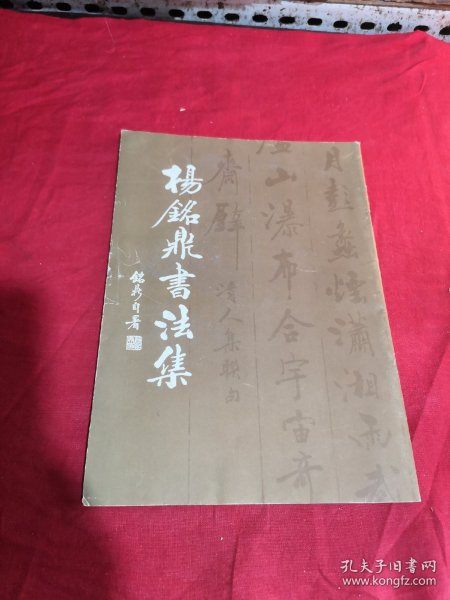 楊銘鼎書法集
銘鼎自署
月彭蠡烟瀟湘雨武
廬山瀑布合宇宙奇
齋壁
清人集聯句
孔夫子旧书网
www.kongfz.com